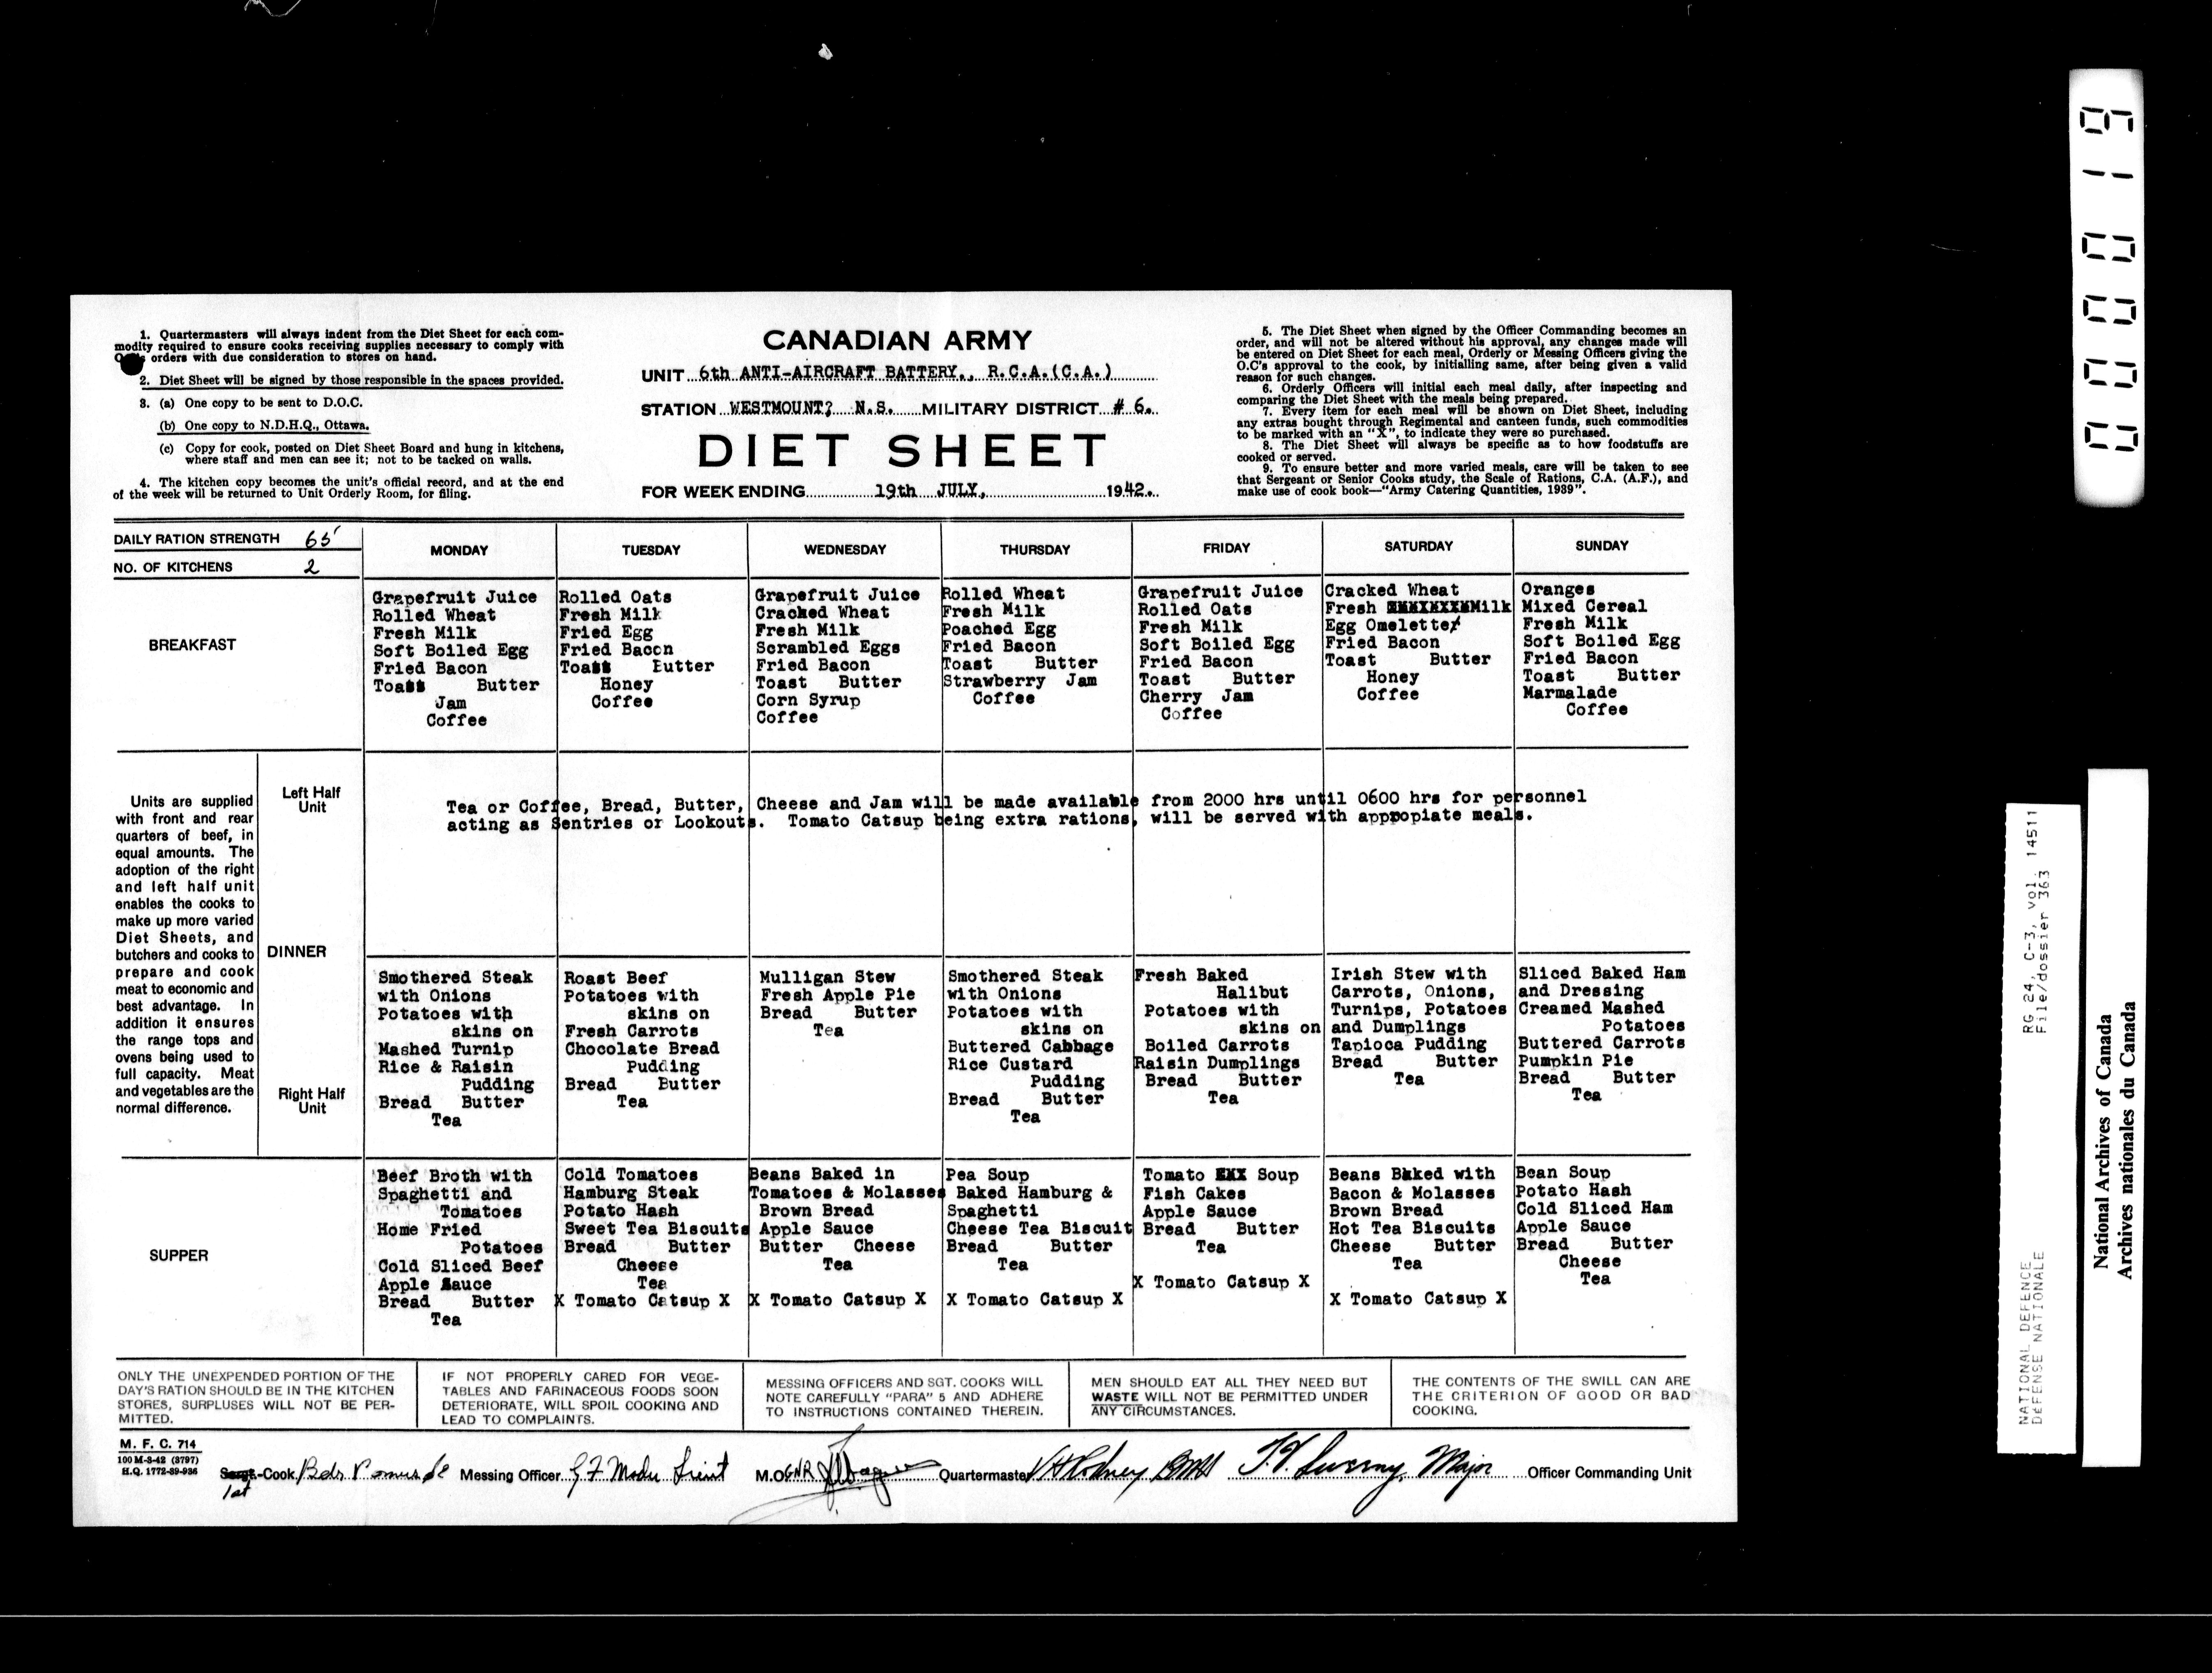 1. Quartermasters will always indent from the Diet Sheet for each com-
modity required to ensure cooks receiving supplies necessary to comply with
orders with due consideration to stores on hand.
2. Diet Sheet will be signed by those responsible in the spaces provided.
3. (a) One copy to be sent to D.O.C.
(b) One copy to N.D.H.Q., Ottawa.
(c) Copy for cook, posted on Diet Sheet Board and hung in kitchens,
where staff and men can see it; not to be tacked on walls.
4. The kitchen copy becomes the unit's official record, and at the end
of the week will be returned to Unit Orderly Room, for filing.
CANADIAN ARMY
UNIT 6th ANTI-AIRCRAFT BATTERY., R.C.A.(C.A.)
STATION WESTMOUNT? N.S. MILITARY DISTRICT # 6.
DIET SHEET
FOR WEEK ENDING 19th JULY, 1942.
5. The Diet Sheet when signed by the Officer Commanding becomes an
order, and will not be altered without his approval, any changes made will
be entered on Diet Sheet for each meal, Orderly or Messing Officers giving the
O.C's approval to the cook, by initialling same, after being given a valid
reason for such changes.
6. Orderly Officers will initial each meal daily, after inspecting and
comparing the Diet Sheet with the meals being prepared.
7. Every item for each meal will be shown on Diet Sheet, including
any extras bought through Regimental and canteen funds, such commodities
to be marked with an "X", to indicate they were so purchased.
8. The Diet Sheet will always be specific as to how foodstuffs are
cooked or served.
9. To ensure better and more varied meals, care will be taken to see
that Sergeant or Senior Cooks study, the Scale of Rations, C.A. (A.F.), and
make use of cook book—"Army Catering Quantities, 1939".
DAILY RATION STRENGTH 65
NO. OF KITCHENS 2
MONDAY
TUESDAY
WEDNESDAY
THURSDAY
FRIDAY
SATURDAY
SUNDAY
BREAKFAST
Grapefruit Juice
Rolled Wheat
Fresh Milk
Soft Boiled Egg
Fried Bacon
Toast Butter
Jam
Coffee
Rolled Oats
Fresh Milk
Fried Egg
Fried Bacon
Toast Butter
Honey
Coffee
Grapefruit Juice
Cracked Wheat
Fresh Milk
Scrambled Eggs
Fried Bacon
Toast Butter
Corn Syrup
Coffee
Rolled Wheat
Fresh Milk
Poached Egg
Fried Bacon
Toast Butter
Strawberry Jam
Coffee
Grapefruit Juice
Rolled Oats
Fresh Milk
Soft Boiled Egg
Fried Bacon
Toast Butter
Cherry Jam
Coffee
Cracked Wheat
Fresh Milk
Egg Omelette
Fried Bacon
Toast Butter
Honey
Coffee
Oranges
Mixed Cereal
Fresh Milk
Soft Boiled Egg
Fried Bacon
Toast Butter
Marmalade
Coffee
Units are supplied
with front and rear
quarters of beef, in
equal amounts. The
adoption of the right
and left half unit
enables the cooks to
make up more varied
Diet Sheets, and
butchers and cooks to
prepare and cook
meat to economic and
best advantage. In
addition it ensures
the range tops and
ovens being used to
full capacity. Meat
and vegetables are the
normal difference.
Left Half
Unit
DINNER
Right Half
Unit
Tea or Coffee, Bread, Butter, Cheese and Jam will be made available from 2000 hrs until 0600 hrs for personnel
acting as Sentries or Lookouts. Tomato Catsup being extra rations, will be served with appropiate meals.
Smothered Steak
with Onions
Potatoes with
skins on
Mashed Turnip
Rice & Raisin
Pudding
Bread Butter
Tea
Roast Beef
Potatoes with
skins on
Fresh Carrots
Chocolate Bread
Pudding
Bread Butter
Tea
Mulligan Stew
Fresh Apple Pie
Bread Butter
Tea
Smothered Steak
with Onions
Potatoes with
skins on
Buttered Cabbage
Rice Custard
Pudding
Bread Butter
Tea
Fresh Baked
Halibut
Potatoes with
skins on
Boiled Carrots
Raisin Dumplings
Bread Butter
Tea
Irish Stew with
Carrots, Onions,
Turnips, Potatoes
and Dumplings
Tapioca Pudding
Bread Butter
Tea
Sliced Baked Ham
and Dressing
Creamed Mashed
Potatoes
Buttered Carrots
Pumpkin Pie
Bread Butter
Tea
SUPPER
Beef Broth with
Spaghetti and
Tomatoes
Home Fried
Potatoes
Cold Sliced Beef
Apple Sauce
Bread Butter
Tea
Cold Tomatoes
Hamburg Steak
Potato Hash
Sweet Tea Biscuits
Bread Butter
Cheese
Tea
X Tomato Catsup X
Beans Baked in
Tomatoes & Molasses
Brown Bread
Apple Sauce
Butter Cheese
Tea
X Tomato Catsup X
Pea Soup
Baked Hamburg &
Spaghetti
Cheese Tea Biscuit
Bread Butter
Tea
X Tomato Catsup X
Tomato Soup
Fish Cakes
Apple Sauce
Bread Butter
Tea
X Tomato Catsup X
Beans Baked with
Bacon & Molasses
Brown Bread
Hot Tea Biscuits
Cheese Butter
Tea
X Tomato Catsup X
Bean Soup
Potato Hash
Cold Sliced Ham
Apple Sauce
Bread Butter
Cheese
Tea
ONLY THE UNEXPENDED PORTION OF THE
DAY'S RATION SHOULD BE IN THE KITCHEN
STORES, SURPLUSES WILL NOT BE PER-
MITTED.
IF NOT PROPERLY CARED FOR VEGE-
TABLES AND FARINACEOUS FOODS SOON
DETERIORATE, WILL SPOIL COOKING AND
LEAD TO COMPLAINTS.
MESSING OFFICERS AND SGT. COOKS WILL
NOTE CAREFULLY "PARA" 5 AND ADHERE
TO INSTRUCTIONS CONTAINED THEREIN.
MEN SHOULD EAT ALL THEY NEED BUT
WASTE WILL NOT BE PERMITTED UNDER
ANY CIRCUMSTANCES.
THE CONTENTS OF THE SWILL CAN ARE
THE CRITERION OF GOOD OR BAD
COOKING.
M. F. C. 714
100 M-3-42 (3797)
H.Q. 1772-39-936
Sergt.-Cook Bdr. Messing Officer Lieut M.O. GNR Quartermaster Major Officer Commanding Unit
1st
000019
NATIONAL DEFENCE RG 24, C-3, vol. 14511
DÉFENSE NATIONALE File/dossier 363
National Archives of Canada
Archives nationales du Canada